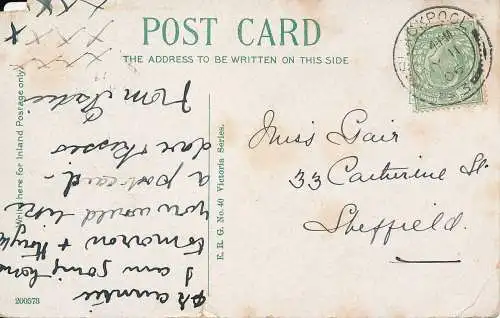 POST CARD
THE ADDRESS TO BE WRITTEN ON THIS SIDE
Write here for Inland Postage only.
auntie
I am going home
tomorrow + thought
you would like
a postcard -
love + kisses
from Sadie
X X X X
X X
X
E. R. G. No. 40 Victoria Series.
200573
BLACKPOOL
11
Miss Gair
33 Catherine St
Sheffield.